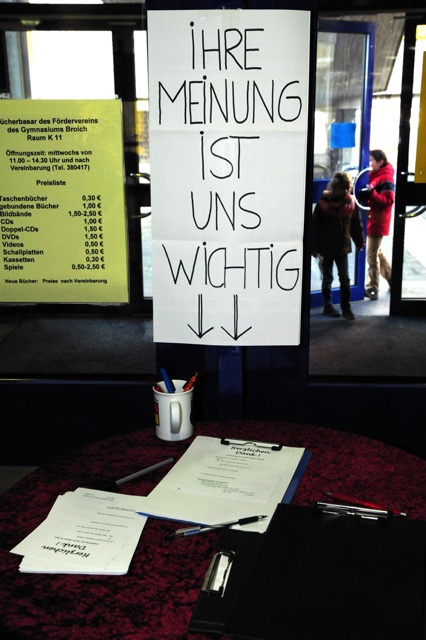 IHRE
MEINUNG
IST
UNS
WICHTIG
Bücherbasar des Fördervereins
des Gymnasiums Broich
Raum K 11
Öffnungszeit: mittwochs von
11.00 – 14.30 Uhr und nach
Vereinbarung (Tel. 380417)
Preisliste
Taschenbücher 0,30 €
gebundene Bücher 1,00 €
Bildbände 1,50-2,50 €
CDs 1,00 €
Doppel-CDs 1,50 €
DVDs 1,50 €
Videos 0,50 €
Schallplatten 0,50 €
Kassetten 0,30 €
Spiele 0,50-2,50 €
Neue Bücher: Preise nach Vereinbarung
Herzlichen
Dank!
Herzlichen
Dank!